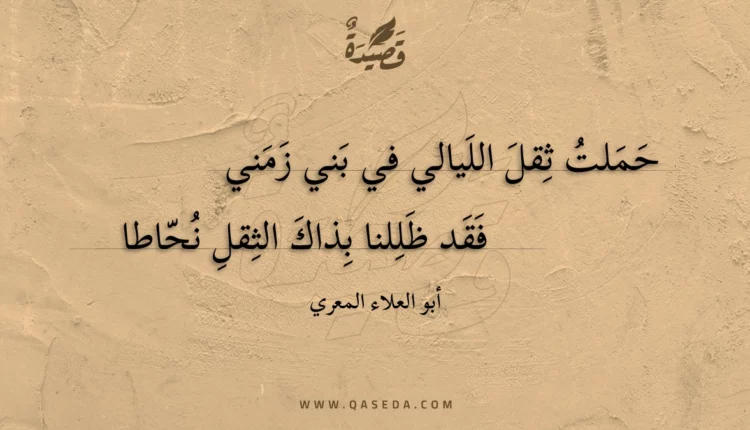 قَصِيْدَةٌ
حَمَلتُ ثِقلَ اللَيالي في بَني زَمَني
فَقَد ظَلِلنا بِذاكَ الثِقلِ نُحّاطا
أبو العلاء المعري
WWW.QASEDA.COM